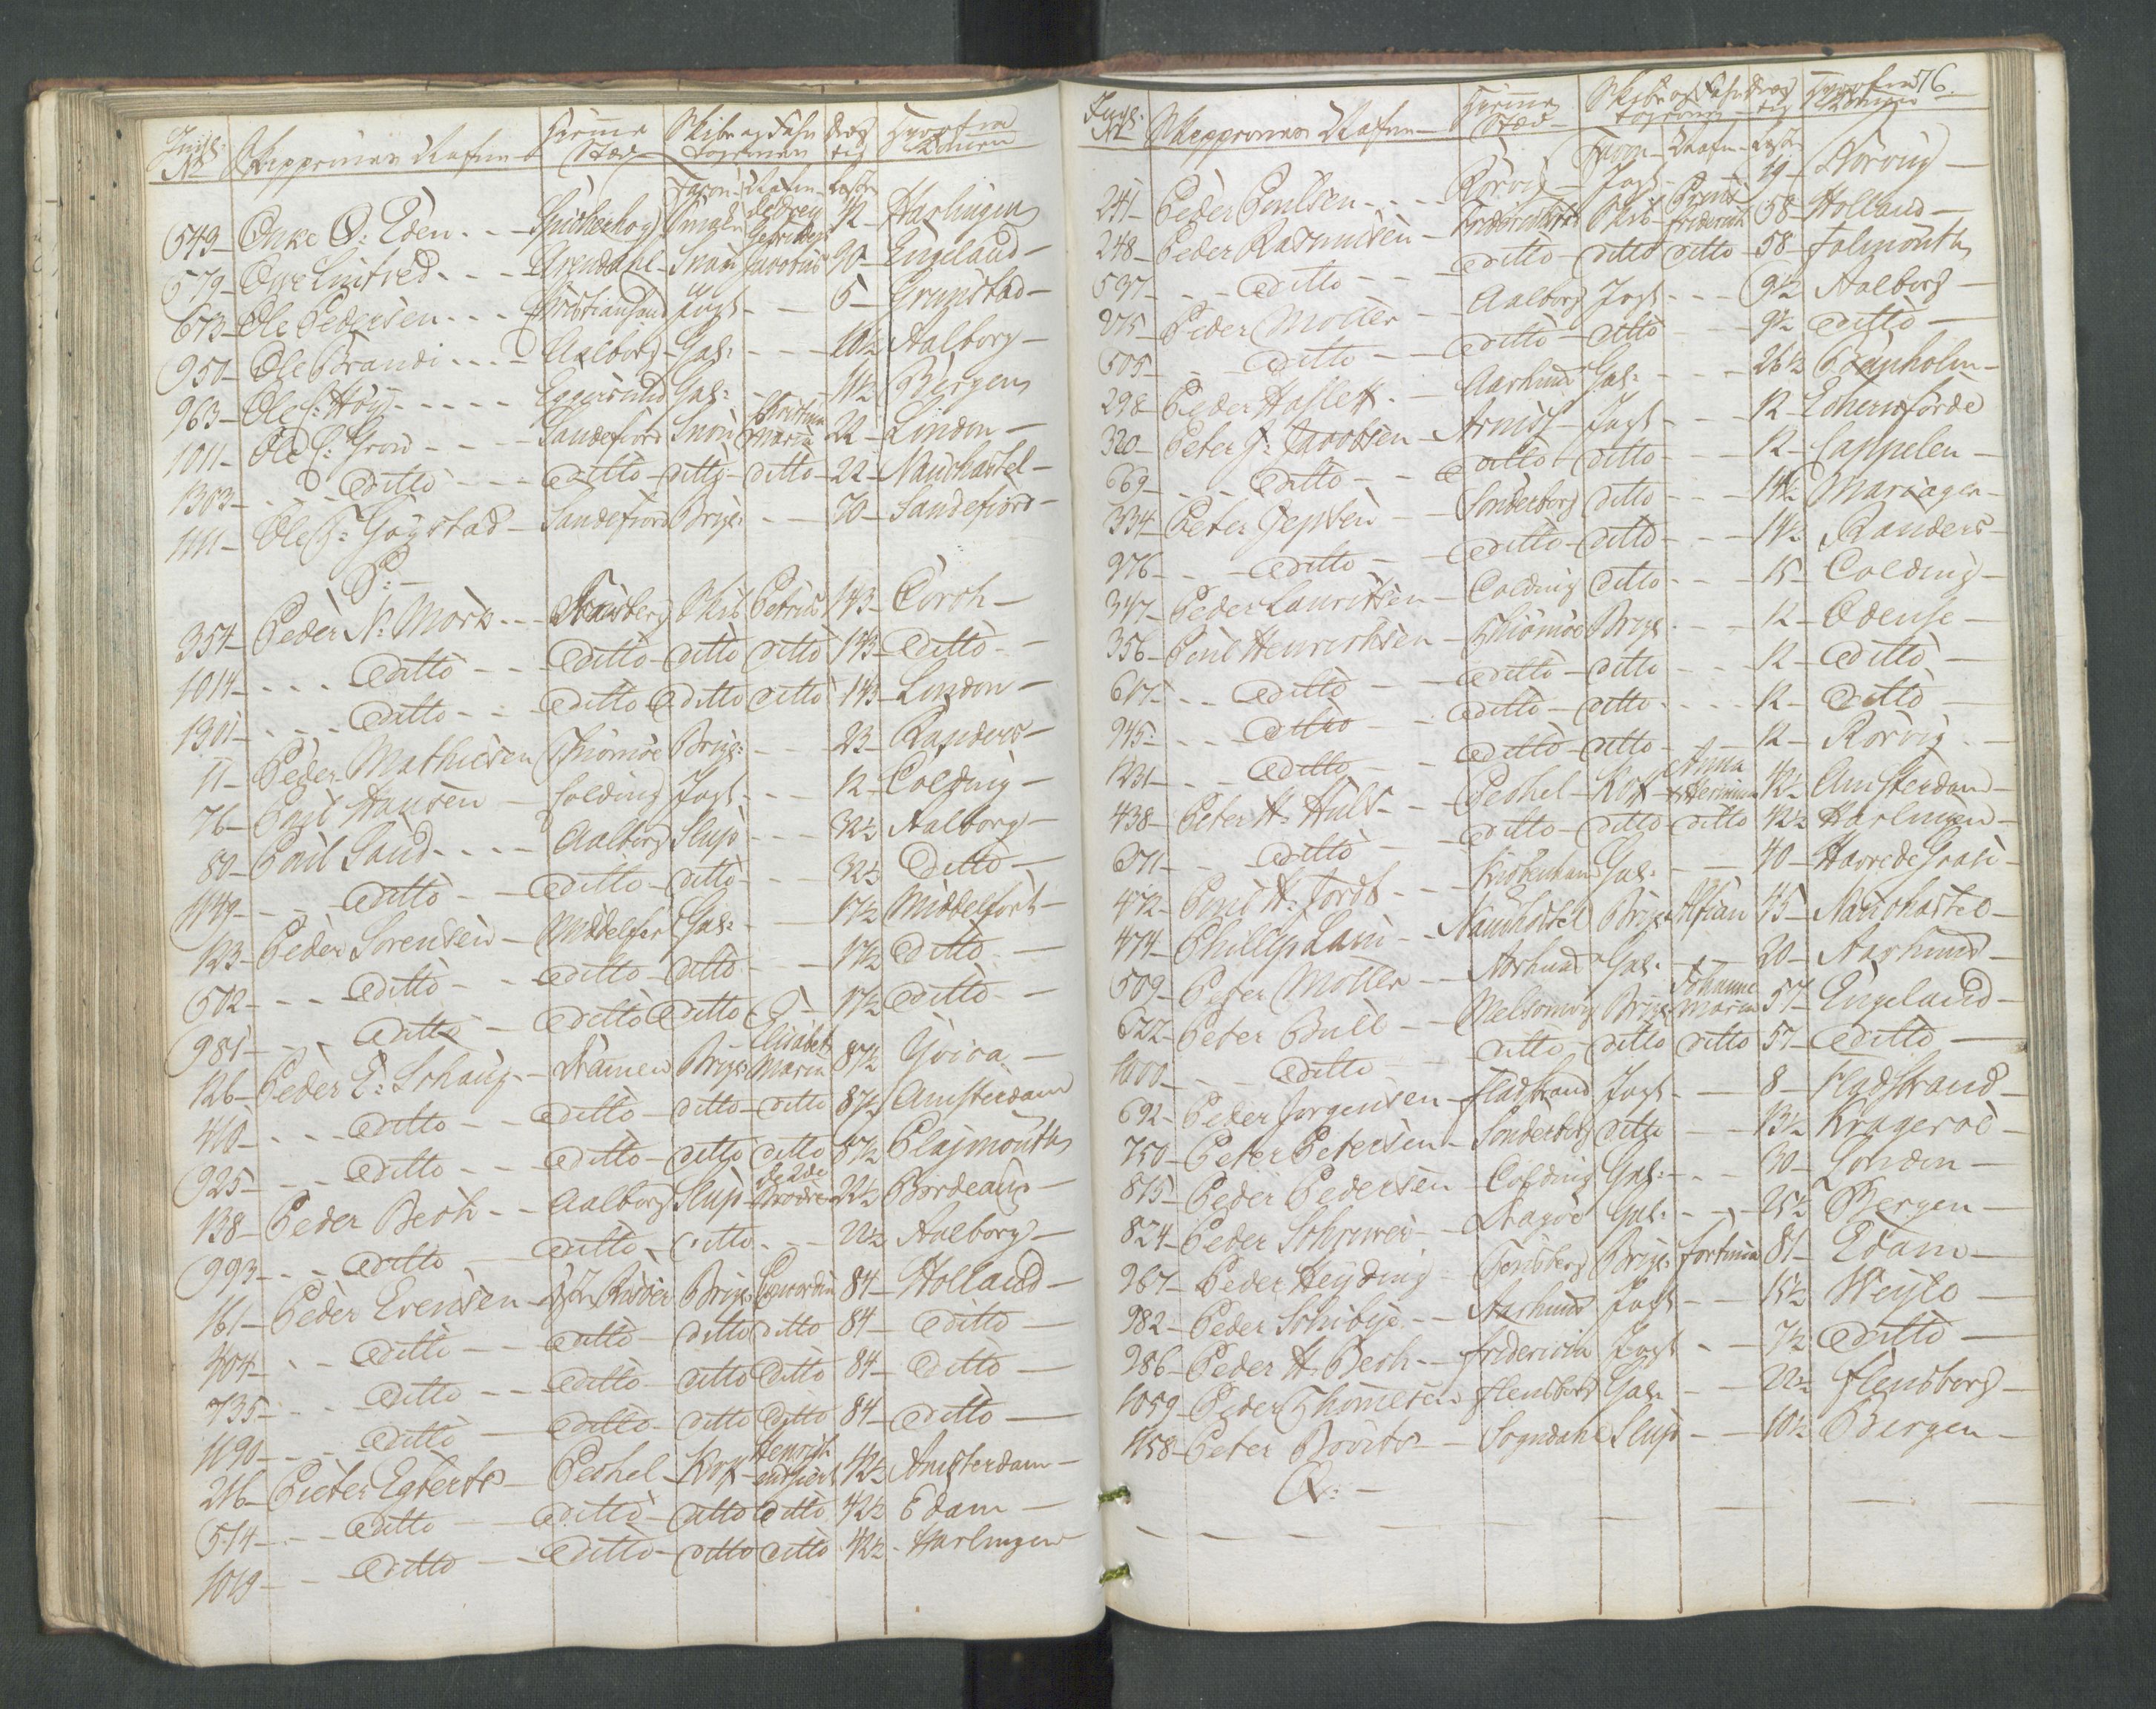 Skippernes Nafne
Hiemme Stæd
Skibe og Fahr
Façon Nafn Læster
549 Onke O: Eden Smak 12 Harlingen
579 Arendahl Snau Jacobus 90 Engeland
673 Ole Pedersen Christiansand Jagt 5 Grimstad
950 Ole Brandi Aalborg Gal: 10½ Aalborg
963 Ole Eggersund Gal: 11½ Bergen
1011 Ole Sandefiord Snau Christina Maria 22 London
1303 Ditto Ditto ditto ditto 22 Naurkastel
1111 Ole Sandefiord Brig: 70 Sandefiord
P:
354 Peder N: Mørk Skib Petrus 143 Corck
1014 Ditto Ditto ditto ditto 143 Ditto
1301 Ditto Ditto Ditto ditto 143 London
11 Peder Mathiesen Thiømøe Brig: 23 Randers
76 Poul Hansen Colding Jagt 12 Colding
80 Poul Aalborg Slup 32½ Aalborg
1149 Ditto Ditto ditto 32½ Ditto
123 Peder Sørensen Middelfar Gal: 17½ Middelfart
502 Ditto Ditto ditto 17½ Ditto
981 Ditto Ditto Ditto 17½ Ditto
126 Peder E: Schaug Dramen Brig: Elisabet Maria 87½
410 Ditto Ditto ditto ditto 87½ Amsterdam
925 Ditto Ditto ditto ditto 87½ Plajmouth
138 Peder Bech Aalborg Slup de 2de Brødre 22½ Bordeaux
993 Ditto Ditto ditto 22½ Aalborg
161 Peder Evensen Øst Risöer Brig: Concordia 84 Holland
404 Ditto Ditto ditto ditto 84 Ditto
735 Ditto Ditto ditto Ditto 84 Ditto
1090 Ditto Ditto ditto Ditto 84 Ditto
216 Pieter Egberts Peckel Kof 42½ Amsterdam
514 Ditto Ditto ditto Ditto 42½ Edam
1019 Ditto Ditto ditto ditto 42½ Harlingen
576.
Skippernes Nafne
Hiemme Stæd
Façon Nafn Læst
241 Peder Poulsen Rørvig Jagt 19 Rørvig
248 Peder Rasmusen Skib Prinds Friderich 58 Holland
537 Ditto Ditto ditto ditto 58 Falmouth
275 Peder Møller Aalborg Jagt 9½ Aalborg
505 Ditto Ditto ditto 9½ Ditto
298 Peder Haslett Aarhuus Gal: 26½
320 Peter J: Jacobsen Arnis Jagt 12 Echernförde
669 Ditto Ditto ditto 12 Cappelen
334 Peter Jepsen Sønderborg ditto 14½ Mariager
976 Ditto Ditto ditto 14½ Randers
347 Peder Lauritsen Colding ditto 15 Colding
356 Poul Henrichsen Thiømøe Brig: 12 Odense
617 Ditto Ditto ditto 12 Ditto
945 Ditto Ditto ditto 12 Ditto
1231 Ditto Ditto ditto 12 Rørvig
438 Peter H: Peckel Kof Anna 42½ Amsterdam
671 Ditto Ditto ditto ditto 42½ Harlingen
472 Poul H: Jordt Kiøbenhavn Gal: 40 Havre de Grace
474 Phillip Lain Naurkastel Brig: 45 Naurkastel
509 Peter Møller Aarhuus Gal: 20 Aarhuus
622 Peter Bull Melsomvig Brig: Johanne Maria 57 Engeland
1000 Ditto Ditto ditto ditto 57 Ditto
692 Peder Jørgensen Fladstrand Jagt 8 Fladstrand
750 Peter Petersen Sønderborg ditto 13½ Krageroe
815 Peder Pedersen Colding Gal: 30 London
824 Peder Schriver Dragöe Gal: 25½ Bergen
967 Peder Heyding Tonsberg Brig: Fortuna 81 Edam
982 Peder Schibye Aarhuus Jagt 15½ Weyle
986 Peder H: Bech Fridericia Jagt 7½ Ditto
1059 Peder Thomesen Flensborg Gal: 22½ Flensborg
1158 Peter Sogndahl Slup 10½ Bergen
Q: